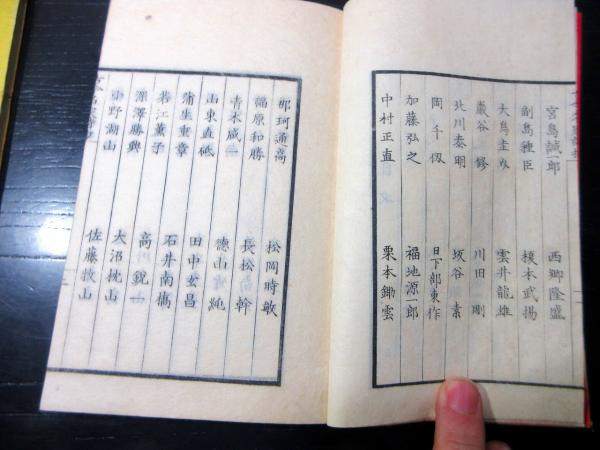 宮島誠一郎 西郷隆盛
副島種臣 榎本武揚
大鳥圭介 雲井龍雄
巖谷修 川田剛
北川泰明 坂谷素
岡千仭 日下部東作
加藤弘之 福地源一郎
中村正直 栗本鋤雲
那珂通高 松岡時敏
福原和勝 長松幹
青木咸一 德山純
山東直砥 田中玄昌
蒲生重章 石井南橋
若江薰子 高銳一
深澤勝興 大沼枕山
小野湖山 佐藤牧山